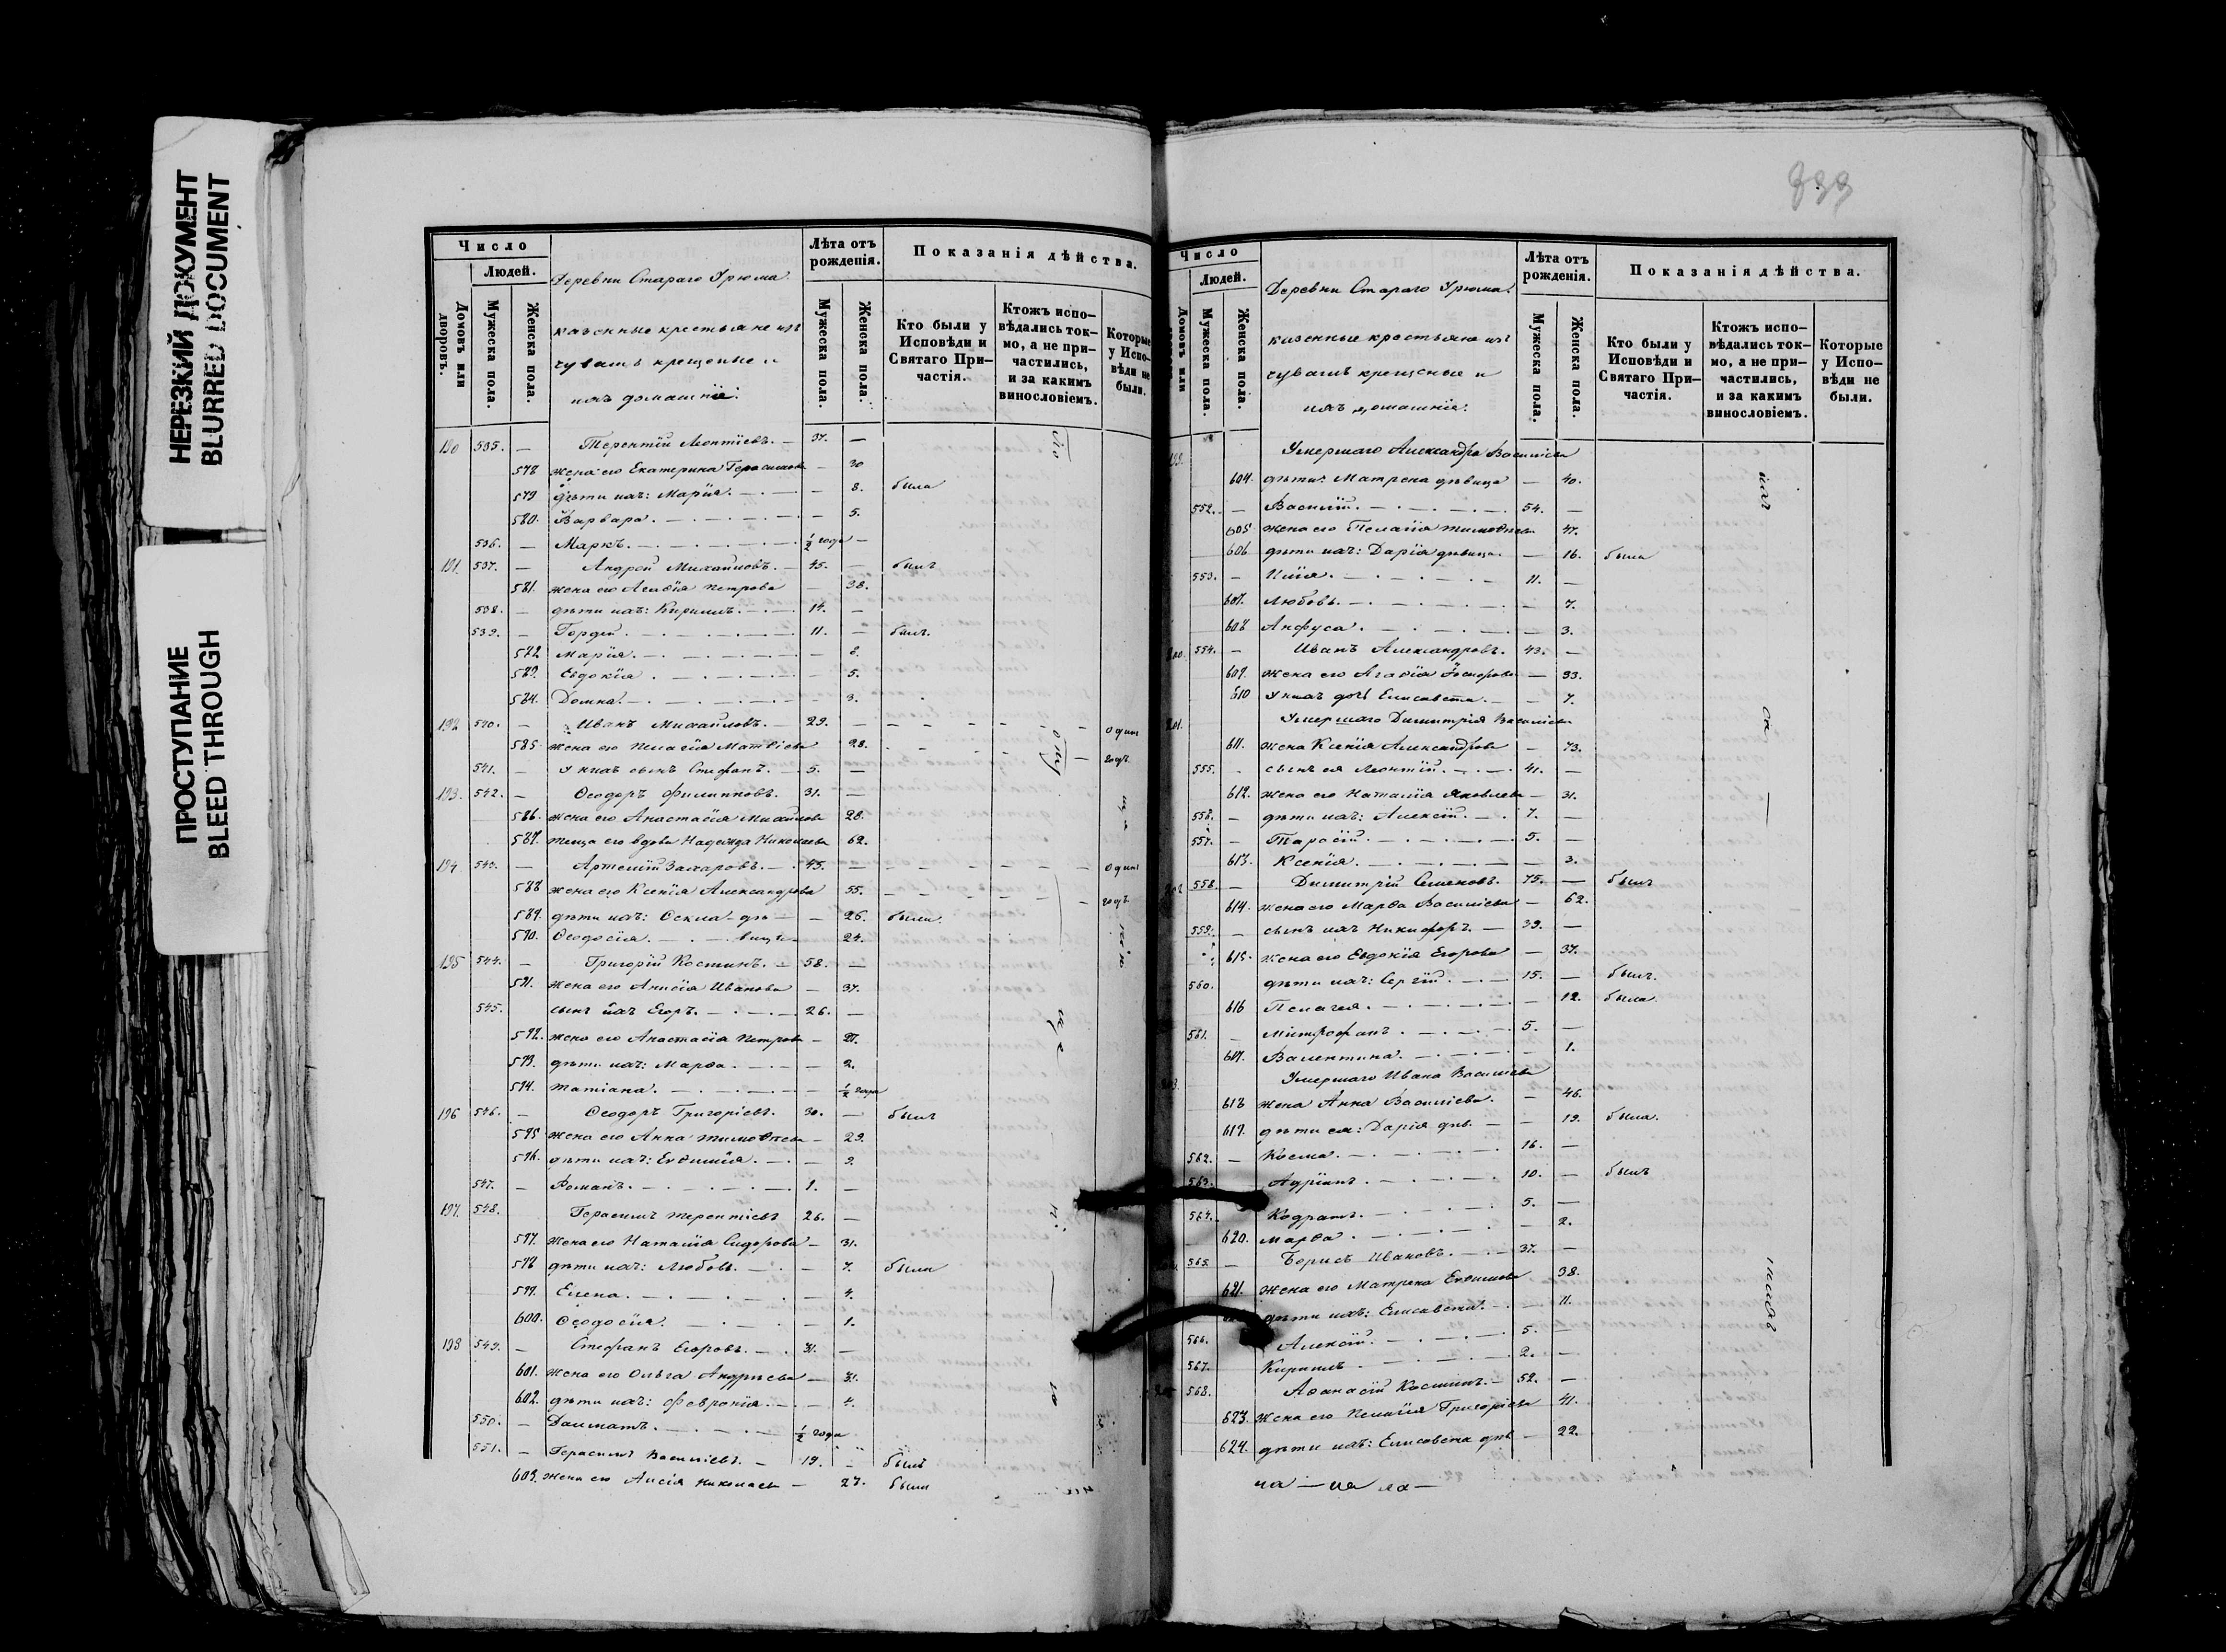 НЕРЕЗКИЙ ДОКУМЕНТ
BLURRED DOCUMENT
ПРОСТУПАНИЕ
BLEED THROUGH
Число
Людей.
Домовъ или дворовъ.
Мужеска пола.
Женска пола.
Деревни Стараго Урюма
казенные крестьяне изъ
чувашъ крещеные и
ихъ домашнiе:
Лѣта отъ рожденія.
Мужеска пола.
Женска пола.
Показанія дѣйства.
Кто были у Исповѣди и Святаго При-частія.
Ктожъ испо-вѣдались ток-мо, а не при-частились, и за какимъ винословіемъ.
Которые у Испо-вѣди не были.
190 535. — Терентiй Леонтiевъ. — 37. —
578 жена его Екатерина Герасимова — 30
579 дѣти ихъ: Марiя. — 8. была
580. Варвара. — 5.
536. — Маркъ. ½ года —
191. 537. — Андрей Михайловъ. — 45. — былъ
581. жена его Агафiя Петрова 38.
538. — дѣти ихъ: Кириллъ. 14. —
539. — Гордей. 11. — былъ.
582 Марiя. — 8.
583. Евдокiя. — 5.
584. Домна. — 3.
192 540. — Иванъ Михайловъ. — 29. — одинъ
585. жена его Пелагiя Матвѣева 28. — годъ.
541. — У нихъ сынъ Стефанъ. — 5. —
193. 542. — Ѳеодоръ Филипповъ. 31. —
586. жена его Анастасiя Михайлова 28.
587. теща его вдова Надежда Николаева 62.
194 543. — Артемiй Захаровъ. — 45. — одинъ
588 жена его Ксенiя Александрова 55. — годъ.
589. дѣти ихъ: Ѳекла — дѣ — — 26. были.
590. Ѳеодосiя. — вицы — 24.
195 544. — Григорiй Костинъ. — 58. —
591. жена его Анисiя Иванова — 37.
545. сынъ ихъ Егоръ. 26. —
592. жена его Анастасiя Петрова — 27.
593. дѣти ихъ: Марѳа. — 2.
594. Татiана. — ½ года
196 546. — Ѳеодоръ Григорiевъ. 30. — былъ
595 жена его Анна Тимоѳеева — 29.
596. дѣти ихъ: Евѳимiя. — 3.
547. — Романъ. 1. —
197. 548. Герасимъ Терентiевъ 26. —
597. жена его Наталiя Сидорова — 31.
598 дѣти ихъ: Любовь. — 7. была
599. Елена. — 4.
600. Ѳеодосiя. — 1.
198 549. — Стефанъ Егоровъ. 31. —
601. жена его Ольга Андреева — 31.
602. дѣти ихъ: Февронiя. — 4.
550. — Далматъ. ½ года
551. — Герасимъ Васильевъ. — 19. — былъ
603. жена его Николаева — 27. была
Число
Людей.
Домовъ или
Мужеска пола.
Женска пола.
Деревни Стараго Урюма
казенные крестьяне изъ
чувашъ крещеные и
ихъ домашнiе:
Лѣта отъ рожденія.
Мужеска пола.
Женска пола.
Показанія дѣйства.
Кто были у Исповѣди и Святаго При-частія.
Ктожъ испо-вѣдались ток-мо, а не при-частились, и за какимъ винословіемъ.
Которые у Испо-вѣди не были.
Умершаго Александра Васильева
604. дѣти: Матрена дѣвица — 40.
552. — Василiй. 54. —
605 жена его Пелагiя Тимоѳеева 47.
606 дѣти ихъ: Дарiя дѣвица — 16. была
553. — Илiя. 11. —
607. Любовь. — 7.
608 Анфуса. — 3.
200. 554. — Иванъ Александровъ. 43. —
609. жена его Агафiя — 33.
610 У нихъ дочь Елисавета. — 7.
201. Умершаго Димитрiя Васильева
611. жена Ксенiя Александрова — 73.
555. сынъ ея Леонтiй. 41. —
612. жена его Наталiя Яковлева — 31.
556. — дѣти ихъ: Алексiй. 7. —
557. — Тарасiй. 5. —
613. Ксенiя. — 3.
558. — Димитрiй Семеновъ. 75. — былъ
614. жена его Марѳа Васильева — 62.
559. — сынъ ихъ Никифоръ. — 39. —
615. жена его Евдокiя Егорова — 37.
560. дѣти ихъ: Сергiй. 15. — былъ.
616 Пелагея. — 12. была.
561. — Митрофанъ. 5. —
617. Валентина. — 1.
Умершаго Ивана Васильева
618 жена Анна Васильева. — 46.
619. дѣти ея: Дарiя дѣв. — 19. была.
562. — Косма. 16. —
563. Адрiанъ. 10. — былъ
564. Кодратъ. 5. —
620. Марѳа. — 2.
565. — Борисъ Ивановъ. 37. —
621. жена его Матрена Евѳимова 38.
дѣти ихъ: Елисавета. — 11.
566. Алексiй. 5. —
567. Кириллъ 2. —
568. Аѳанасiй Костинъ. — 52. —
623. жена его Пелагiя Григорiева 41.
624. дѣти ихъ: Елисавета дѣв — 22.